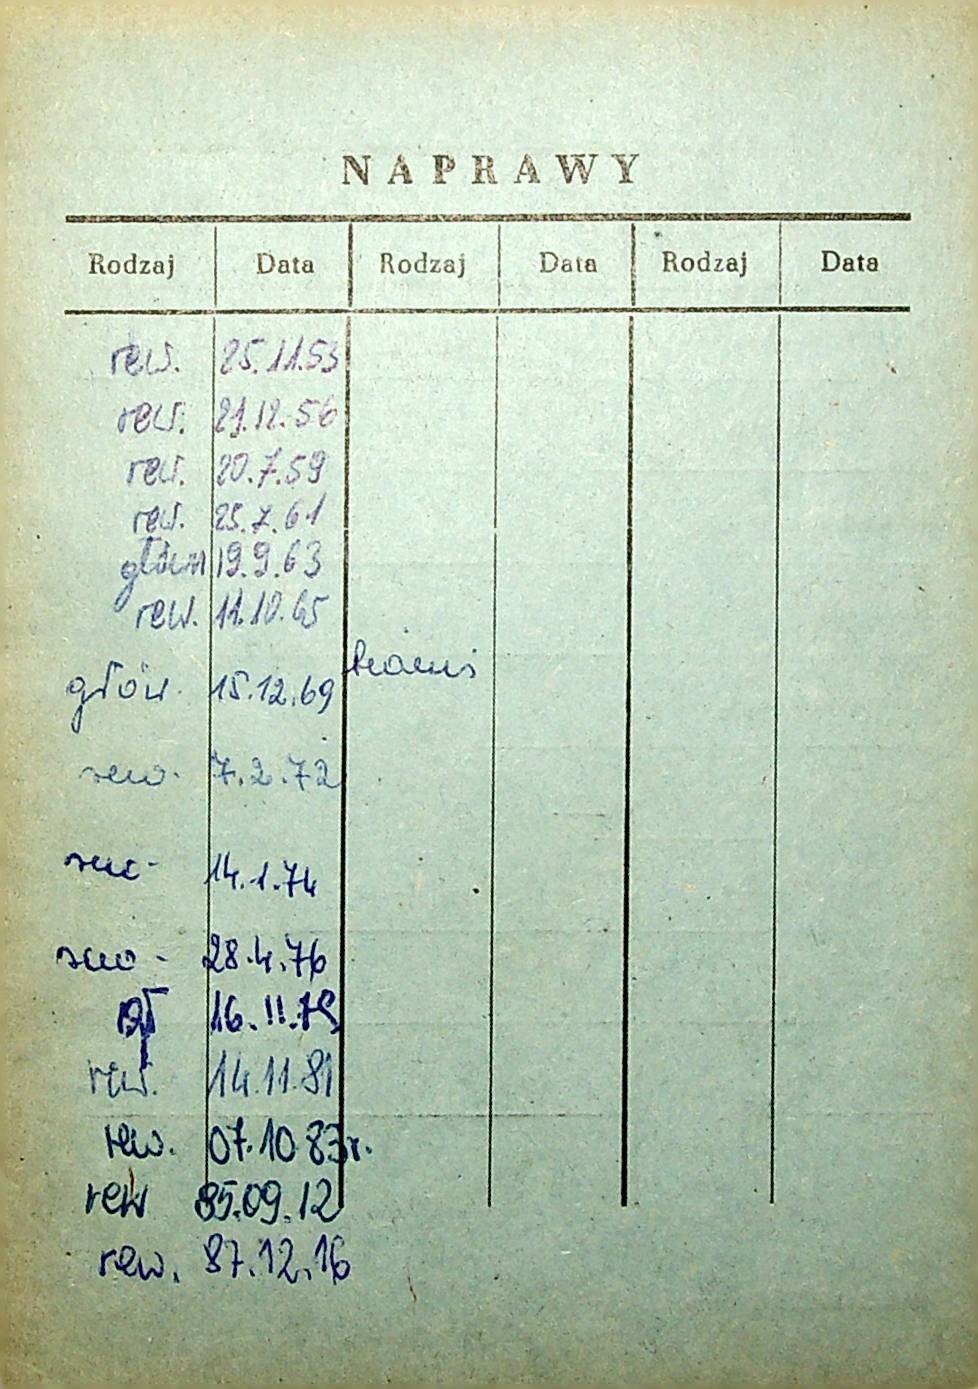 NAPRAWY
Rodzaj Data Rodzaj Data Rodzaj Data
rew. 25.11.53
rew. 21.12.56
rew. 20.7.59
rew. 25.7.61
główn 19.9.63
rew. 11.10.65
głów. 15.12.69
rew. 7.2.72
rew- 14.1.74
rew- 28.4.76
gł 16.11.79
rew. 14.11.81
rew. 07.10.83r.
rew 85.09.12
rew. 87.12.16